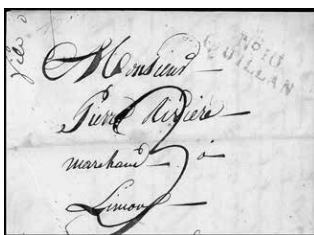 No. 10
QUILLAN
Monsieur
Pierre Rivière
marchand à
Limoux